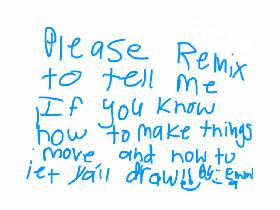 Please Remix
to tell me
If you know
how to make things
move and how to
let ya'll draw!! By: Emma